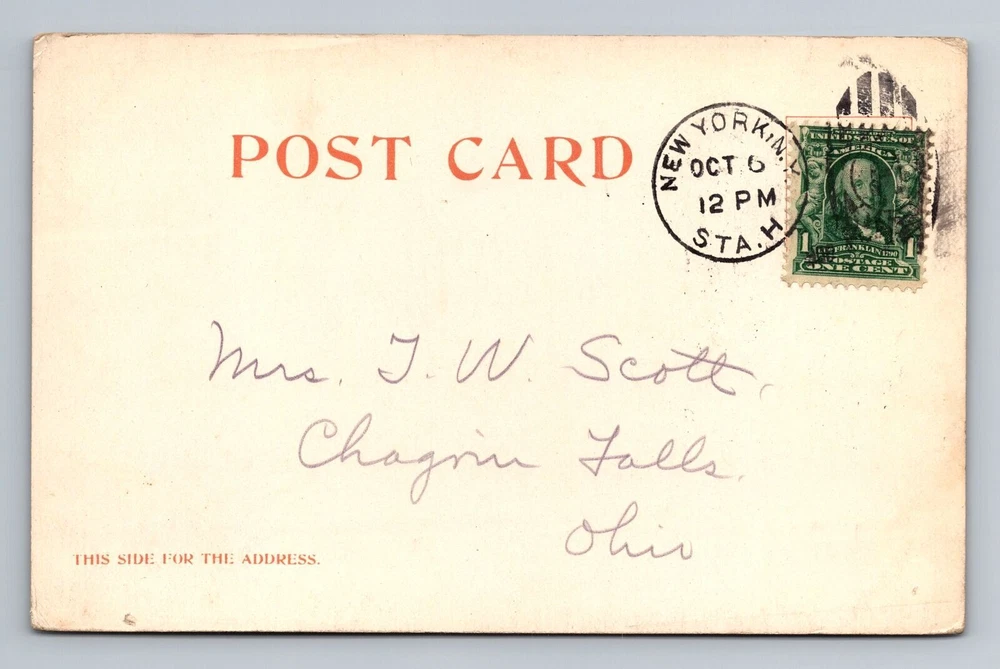 POST CARD
NEW YORK, N.Y.
OCT 6
12 PM
STA. H
SERIES 1902
UNITED STATES OF
AMERICA
FRANKLIN 1790
1 1
POSTAGE
ONE CENT
Mrs. T. W. Scott,
Chagrin Falls.
Ohio
THIS SIDE FOR THE ADDRESS.